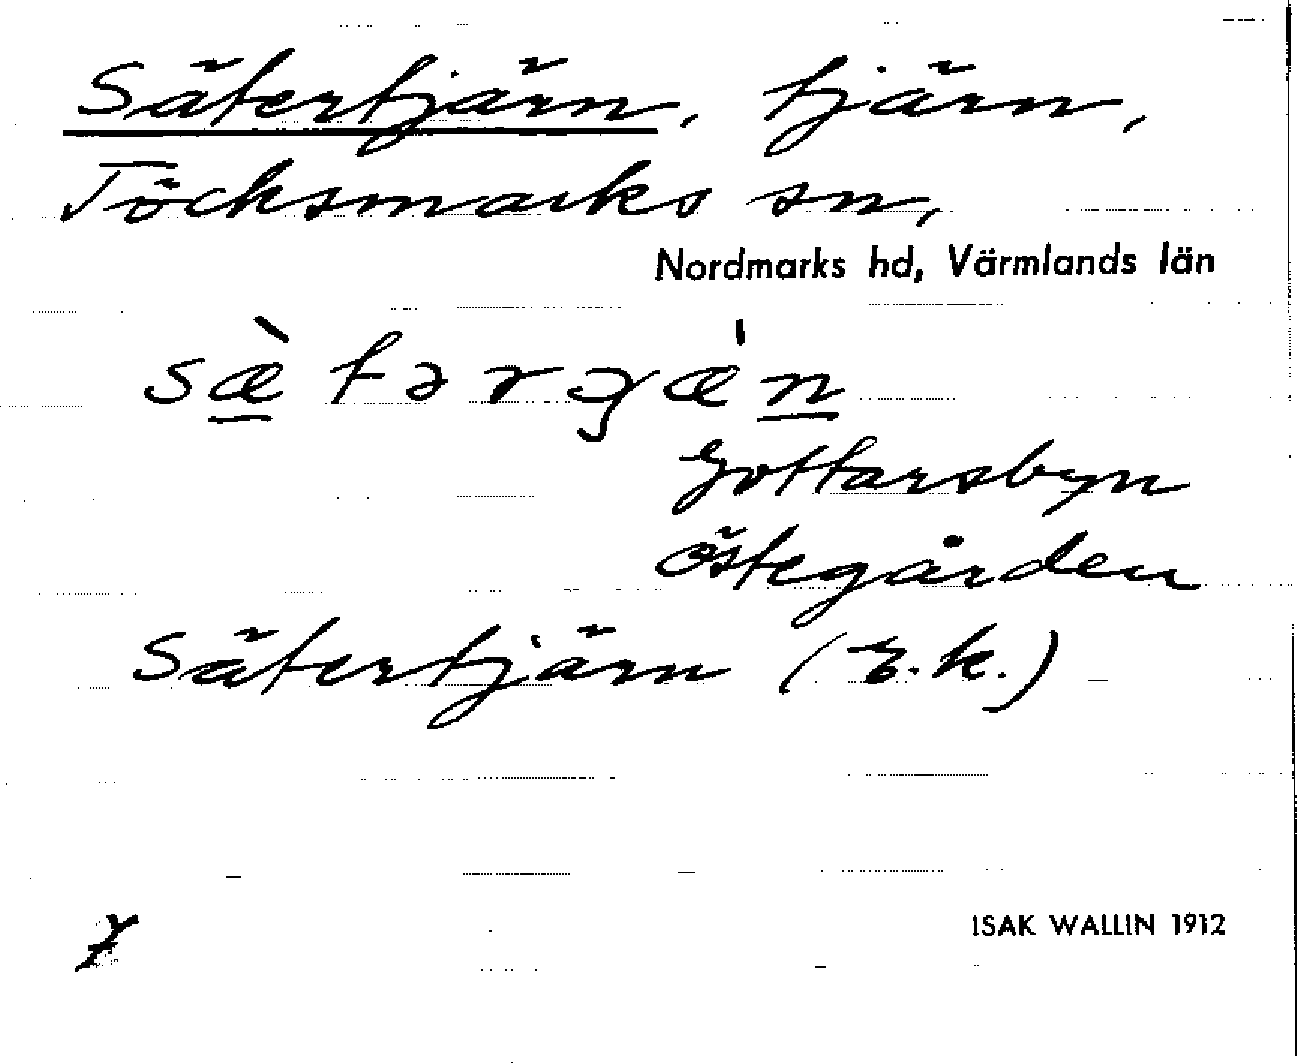 Sätertjärn, tjärn,
Töcksmarks sn,
Nordmarks hd, Värmlands län
sæ̀tərgǽn
Gottarsbyn
Östegården
Sätertjärn (E.k.)
7
ISAK WALLIN 1912